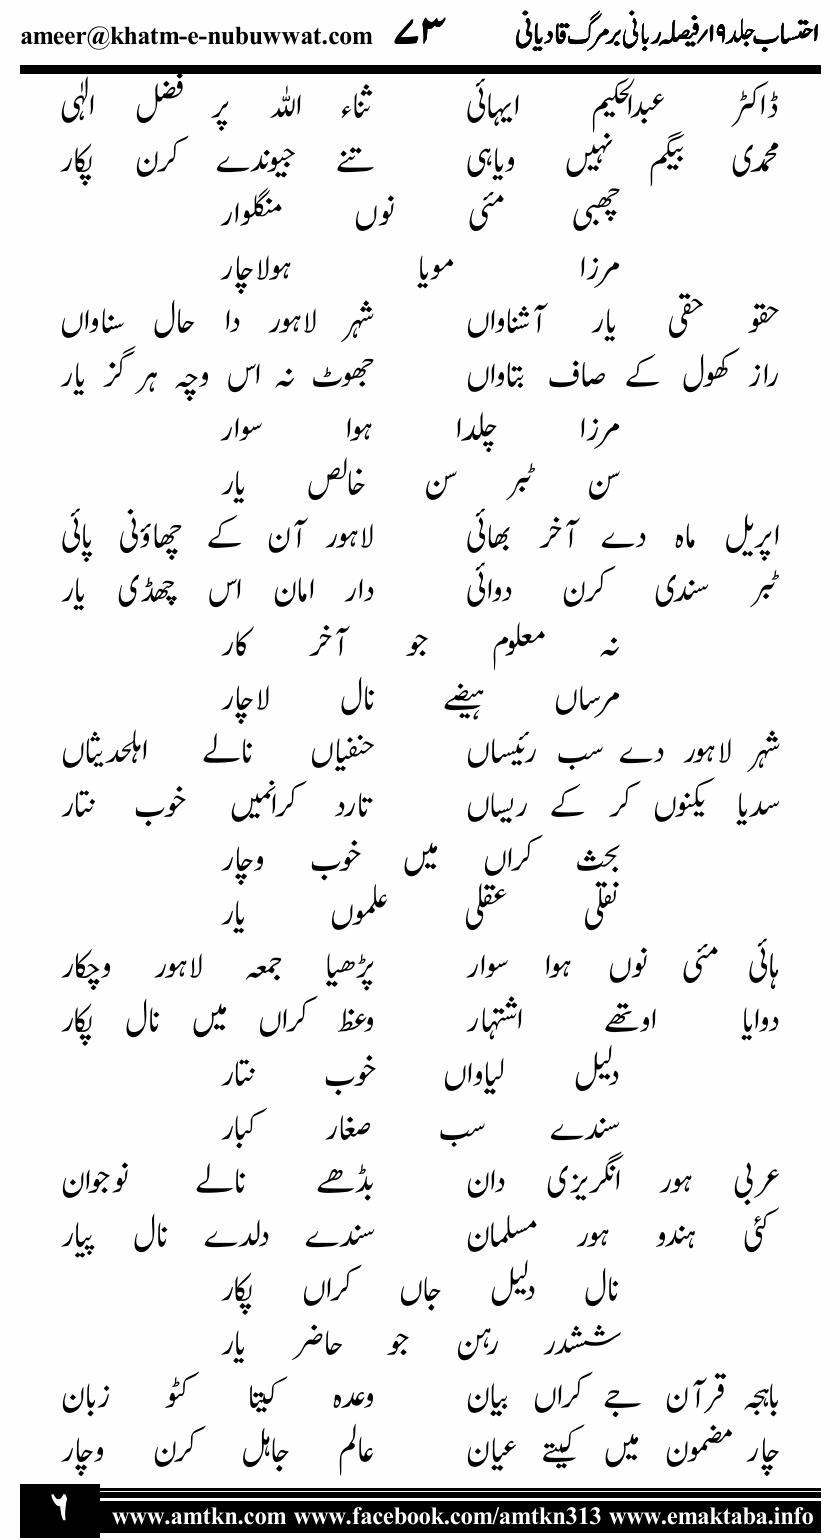 احتساب جلد ۱۹/ فیصلہ ربانی بر مرگ قادیانی ۷۳ ameer@khatm-e-nubuwwat.com
ڈاکٹر عبدالحکیم ایہائی ثناء اللہ پر فضل الٰہی
محمدی بیگم نہیں ویاہی تنے جیوندے کرن پکار
چھبی مئی نوں منگلوار
مرزا مویا ہولاچار
حقو حقی یار آشناواں شہر لاہور دا حال سناواں
راز کھول کے صاف بتاواں جھوٹ نہ اس وچہ ہرگز یار
مرزا چلدا ہوا سوار
سن ٹبر سن خالص یار
اپریل ماہ دے آخر بھائی لاہور آن کے چھاؤنی پائی
ٹبر سندی کرن دوائی دار امان اس چھڈی یار
نہ معلوم جو آخر کار
مرساں ہیضے نال لاچار
شہر لاہور دے سب رئیساں حنفیاں نالے اہلحدیثاں
سدیا یکنوں کر کے ریساں تارد کرانمیں خوب نتار
بحث کراں میں خوب وچار
نقلی عقلی علموں یار
ہائی مئی نوں ہوا سوار پڑھیا جمعہ لاہور وچکار
دوایا اوتھے اشتہار وعظ کراں میں نال پکار
دلیل لیاواں خوب نتار
سندے سب صغار کبار
عربی ہور انگریزی دان بڈھے نالے نوجوان
کئی ہندو ہور مسلمان سندے دلدے نال پیار
نال دلیل جاں کراں پکار
ششدر رہن جو حاضر یار
باہجہ قرآن جے کراں بیان وعدہ کیتا کٹو زبان
چار مضمون میں کیتے عیان عالم جاہل کرن وچار
۶ www.amtkn.com www.facebook.com/amtkn313 www.emaktaba.info